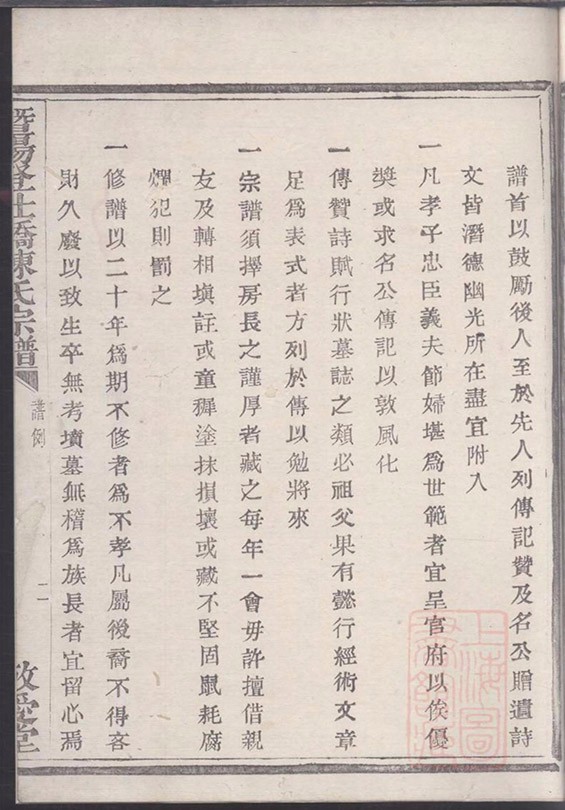 譜首以鼓勵後人至於先人列傳記贊及名公贈遺詩
文皆潛德幽光所在盡宜附入
一凡孝子忠臣義夫節婦堪爲世範者宜呈官府以俟優
獎或求名公傳記以敦風化
一傳贊詩賦行狀墓誌之類必祖父果有懿行經術文章
足爲表式者方列於傳以勉將來
一宗譜須擇房長之謹厚者藏之每年一會毋許擅借親
友及轉相塡註或童穉塗抹損壞或藏不堅固鼠耗腐
爛犯則罰之
一修譜以二十年爲期不修者爲不孝凡屬後裔不得吝
財久廢以致生卒無考墳墓無稽爲族長者宜留心焉
暨陽
橋陳氏宗譜
譜例
二
敬愛堂
上海圖